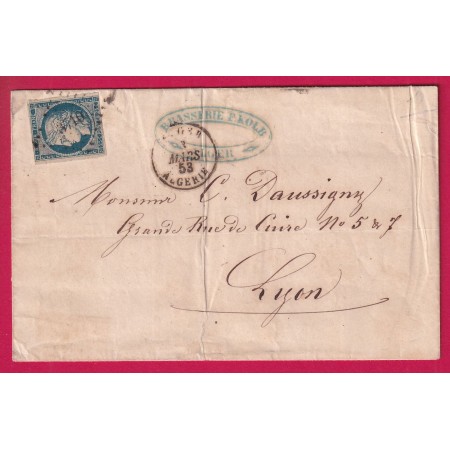 BRASSERIE P. KOLB
ALGER
ALGER
3
MARS
53
ALGERIE
Monsieur C. Daussigny
Grande Rue de Cuire No 5 & 7
Lyon